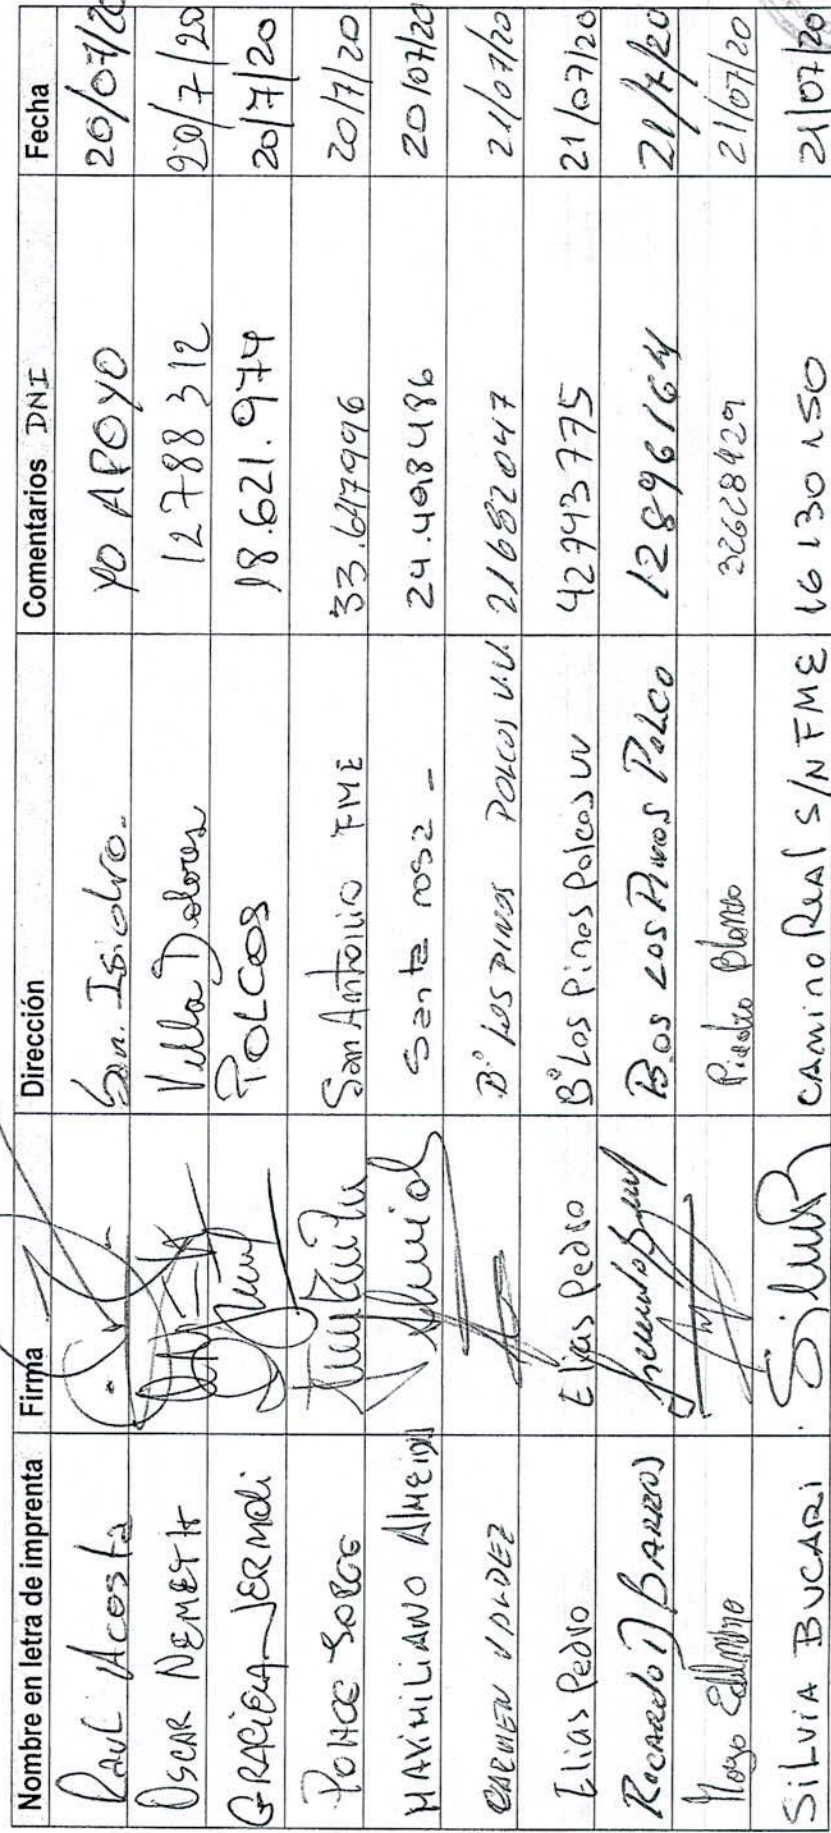 Nombre en letra de imprenta Firma Dirección Comentarios DNI Fecha
Raul Acosta San Isidro. yo APOYO 20/07/20
OSCAR NEMETH Villa Dolores 12788312 20/7/20
GRACIELA JERMOLI POLCOS 18.621.974 20/7/20
PONCE JORGE San Antonio FME 33.647996 20/7/20
MAXIMILIANO ALMEIDA Santa rosa - 24.498486 20/07/20
CARMEN VALDEZ B° LOS PINOS POLCOS V.V. 21682047 21/07/20
Elias Pedro Elias Pedro B° Los Pinos Polcos VV 42743775 21/07/20
Ricardo D BARROS B.os LOS Pinos Polco 12896164 21/7/20
Piedra Blanca 32628429 21/07/20
SiLViA BUCARi Silvia B CAMiNO REAL S/N FME 16130150 21/07/20